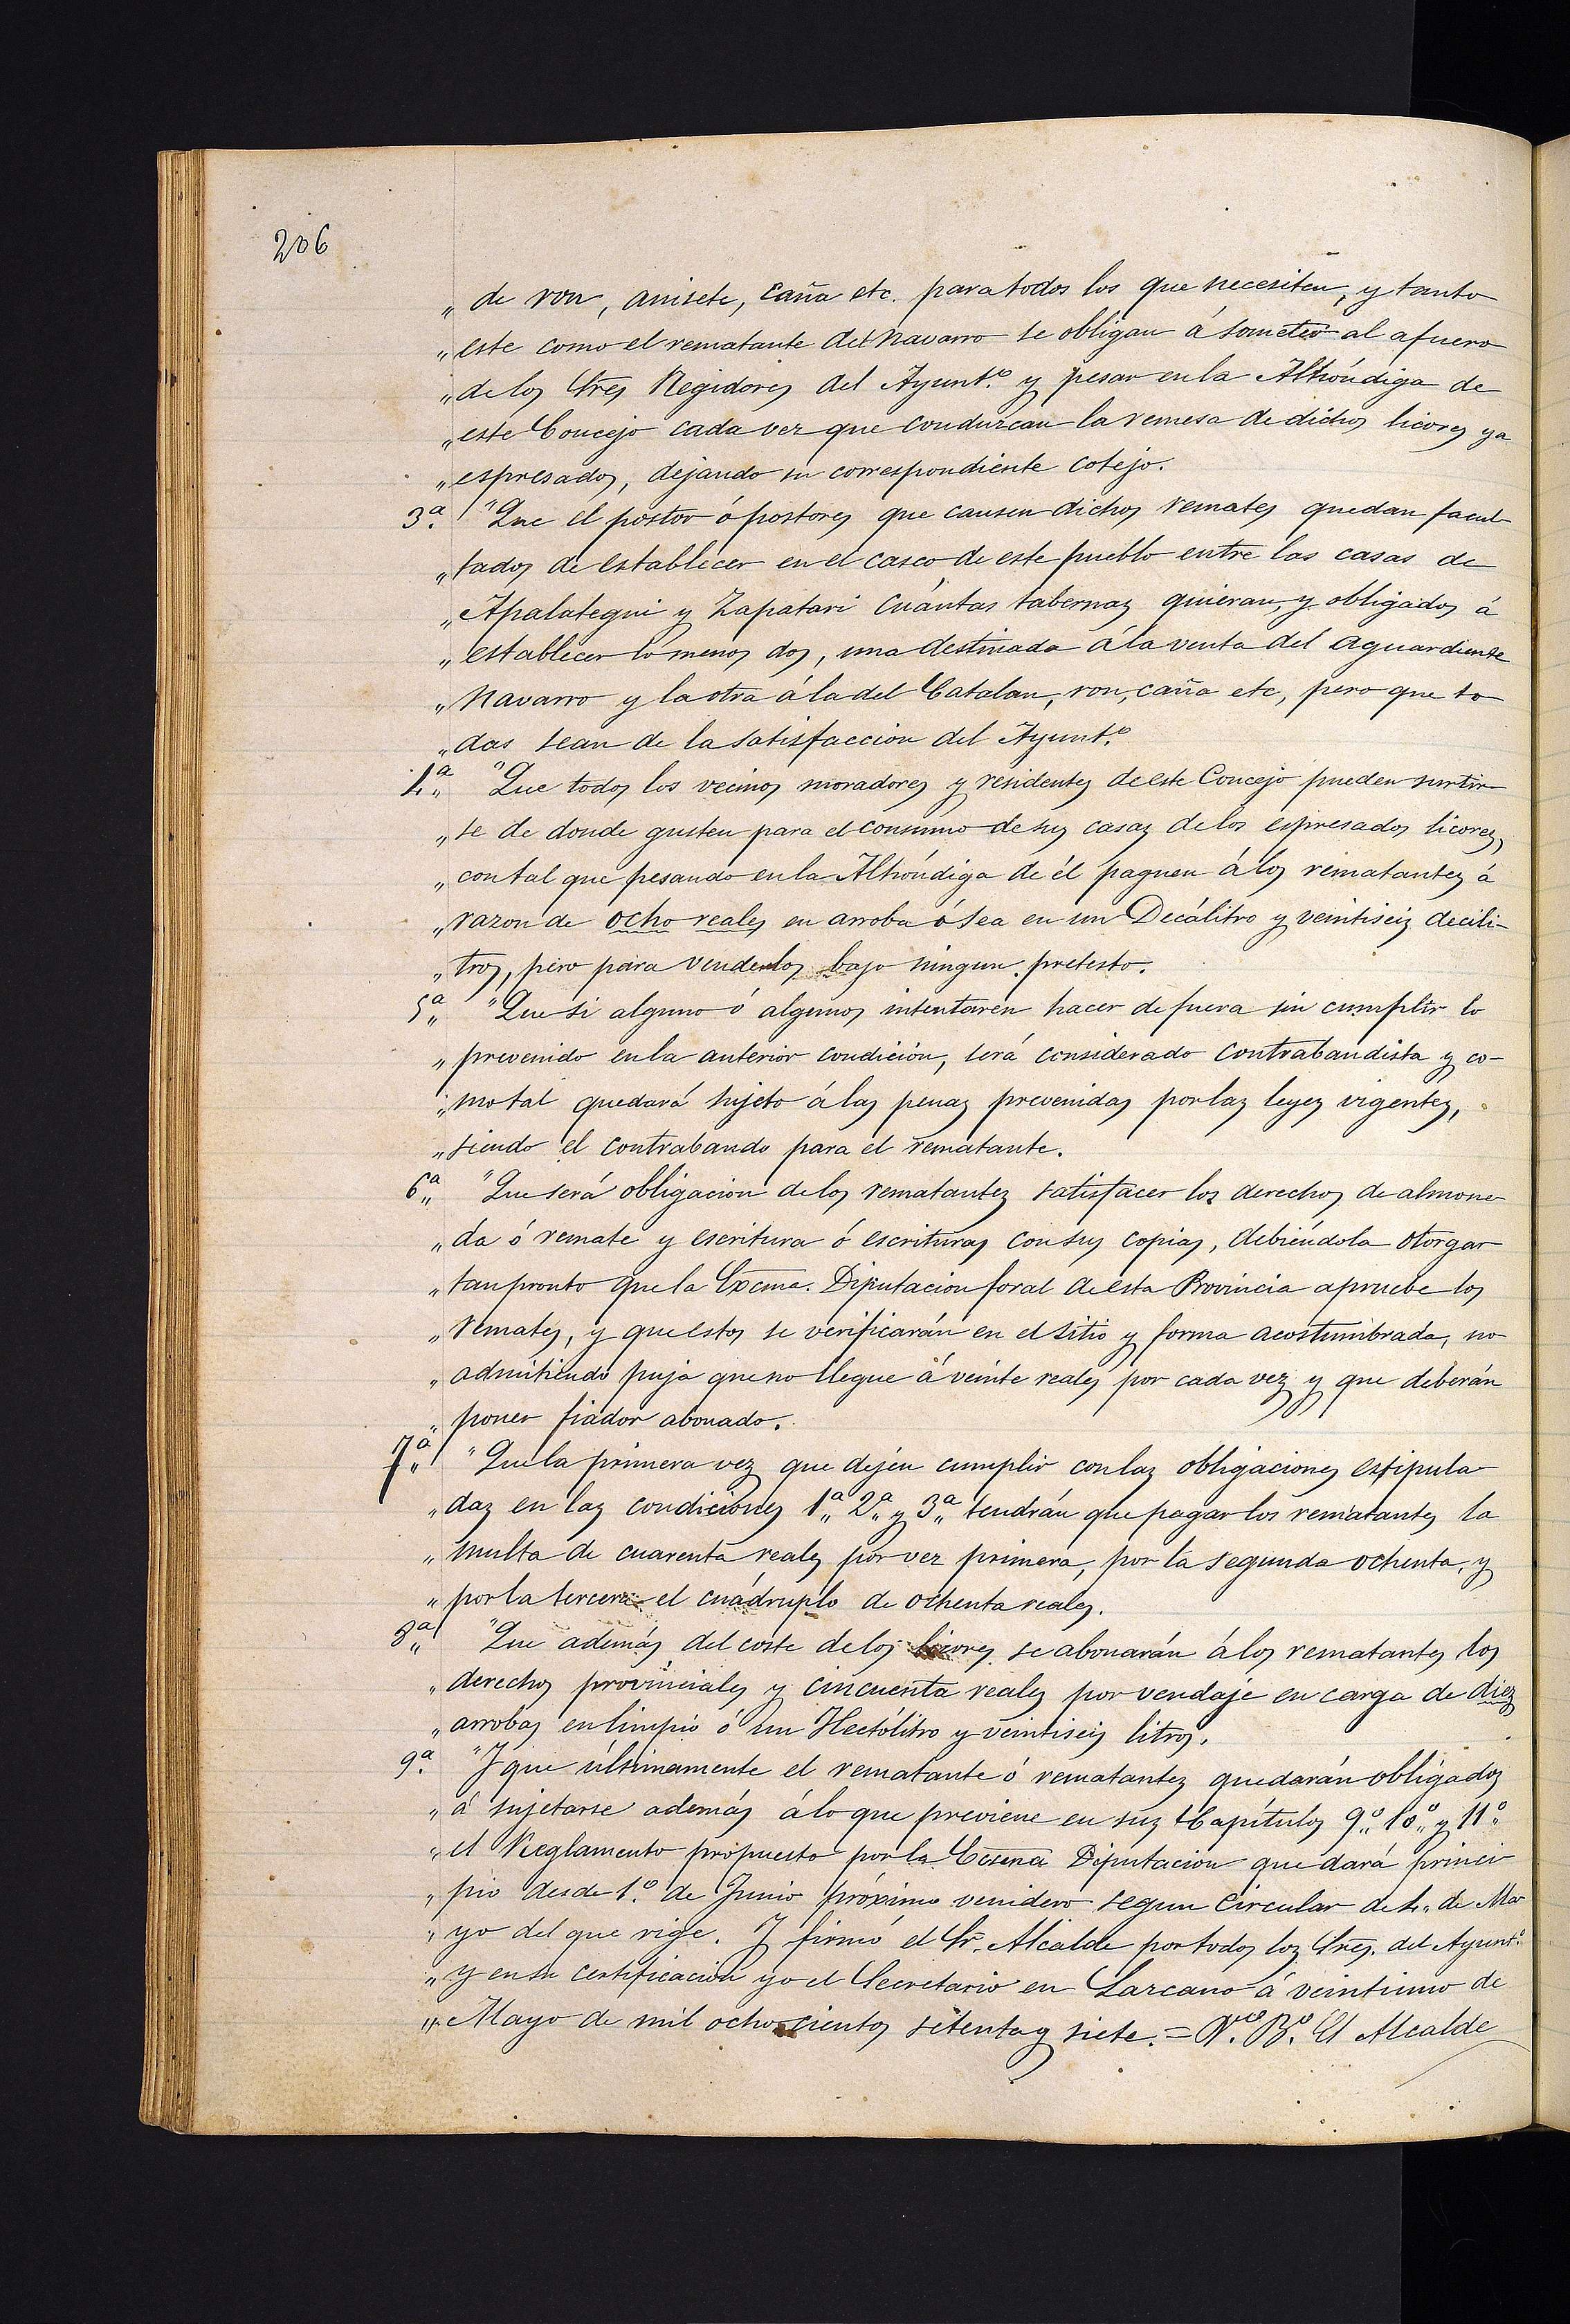 206
„ de ron, anisete, caña etc. para todos los que necesiten, y tanto
„ este como el rematante del navarro se obligan á someter al afuero
„ de los Sres Regidores del Ayunt.º y pesar en la Alhóndiga de
„ este Concejo cada vez que conduzcan la remesa de dichos licores ya
„ espresados, dejando su correspondiente cotejo.
3ª. " Que el postor ó postores que causen dichos remates quedan facul-
„ tados de establecer en el casco de este pueblo entre las casas de
„ Apalategui y Zapatari cuántas tabernas quieran, y obligados á
„ establecer lo menos dos, una destinada á la venta del aguardiente
„ Navarro y la otra á la del Catalan, ron, caña etc, pero que to
„ das sean de la satisfaccion del Ayunt.º
4ª„ " Que todos los vecinos moradores y residentes de este Concejo pueden surtir
„ se de donde gusten para el consumo de sus casas de los espresados licores,
„ con tal que pesando en la Alhóndiga de él paguen á los rematantes á
„ razon de ocho reales en arroba ó sea en un Decálitro y veintiseis decili-
„ tros, pero para venderlos bajo ningun pretesto.
5ª„ " Que si alguno ó algunos intentaren hacer de fuera sin cumplir lo
„ prevenido en la anterior condición, será considerado contrabandista y co-
„ mo tal quedará sujeto á las penas prevenidas por las leyes vigentes,
„ siendo el contrabando para el rematante.
6ª„ " Que será obligacion de los rematantes satisfacer los derechos de almone-
„ da ó remate y escritura ó escrituras con sus copias, debiéndola otorgar
„ tan pronto que la Excma. Diputacion foral de esta Provincia apruebe los
„ remates, y que estos se verificarán en el sitio y forma acostumbrada, no
„ admitiendo puja que no llegue á veinte reales por cada vez y que deberán
„ poner fiador abonado.
7ª„ " Que la primera vez que dejen cumplir con las obligaciones estipula-
„ das en las condiciones 1ª„ 2ª„ y 3ª„ tendrán que pagar los rematantes la
„ multa de cuarenta reales por vez primera, por la segunda ochenta, y
„ por la tercera el cuádruplo de ochenta reales.
8ª„ " Que además del coste de los licores se abonarán á los rematantes los
„ derechos provinciales y cincuenta reales por vendaje en carga de diez
„ arrobas en limpio ó un Hectólitro y veintiseis litros.
9ª. " Y que últimamente el rematante ó rematantes quedarán obligados
„ á sujetarse además á lo que previene en sus Capítulos 9º„ 10º„ y 11º„
„ el Reglamento propuesto por la Excma Diputacion que dará princi-
„ pio desde 1.º de Junio próximo venidero segun circular de 4„ de Ma-
„ yo del que rige. Y firmó el Sr. Alcalde por todos los Sres. del Ayunt.º
„ y en su certificación yo el Secretario en Lazcano á veintiuno de
„ Mayo de mil ochocientos setenta y siete. = Vº. Bº. El Alcalde